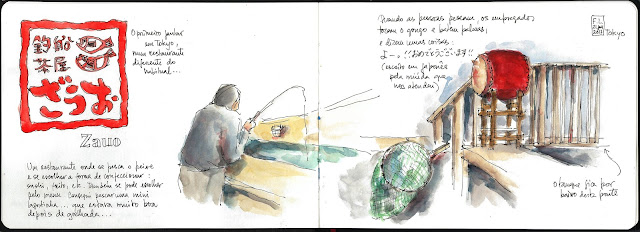 釣船
茶屋
ざうお
Zauo
O primeiro jantar
em Tokyo,
num restaurante
diferente do
habitual...
Um restaurante onde se pesca o peixe
e se escolhe a forma de confeccionar:
frito, etc. Também se pode escolher
pelo menu. Consegui pescar uma mini
lagostinha... que estava muito boa
depois de grelhada...
Quando as pessoas pescam, os empregados
tocam o gongo e batem palmas,
e dizem umas coisas:
よーっ!!おめでとうございます!!
(escrito em japonês
pela miúda que
nos atendeu)
F.L.
Tokyo
O tanque fica por
baixo desta ponte